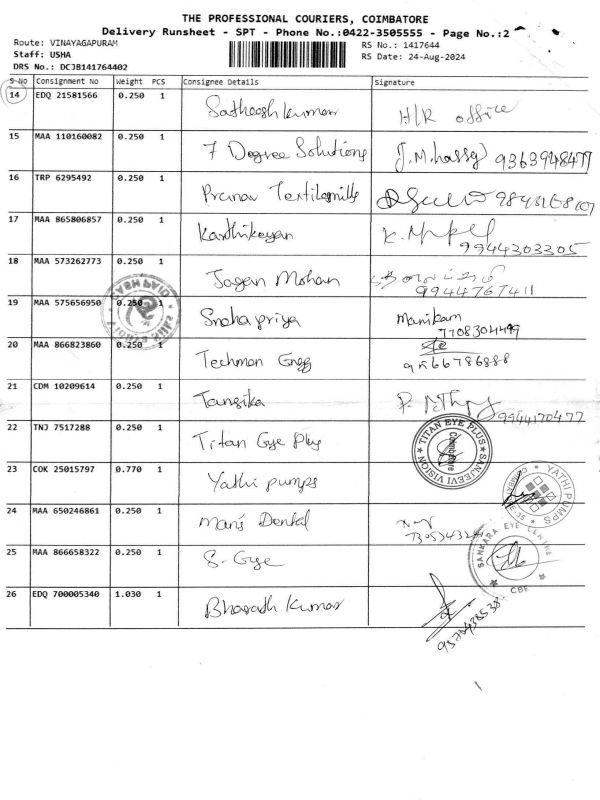 THE PROFESSIONAL COURIERS, COIMBATORE
Delivery Runsheet - SPT - Phone No.:0422-3505555 - Page No.:2
Route: VINAYAGAPURAM
Staff: USHA
DRS No.: DCJB141764402
RS No.: 1417644
RS Date: 24-Aug-2024
S No Consignment No Weight PCS Consignee Details Signature
14 EDQ 21581566 0.250 1 Satheesh kumar H/R office
15 MAA 110160082 0.250 1 7 Degree Solutions 9363948477
16 TRP 6295492 0.250 1 Pranav Textilemills
17 MAA 865806857 0.250 1 Karthikeyan
9944303305
18 MAA 573262773 0.250 1 Jagan Mohan
9944767411
19 MAA 575656950 0.250 1 Sneha priya Manikam
7708304499
20 MAA 866823860 0.250 1 Techman Engg
9566786888
21 CDM 10209614 0.250 1 Tansika
9944170477
22 TNJ 7517288 0.250 1 Titan Eye Plus
TITAN EYE PLUS
SANJEEVI VISION
Coimbatore
23 COK 25015797 0.770 1 Yathi pumps
YATHI PUMPS
24 MAA 650246861 0.250 1 Mani's Dental
25 MAA 866658322 0.250 1 S. Eye
SANKARA EYE CENTRE
CBE
26 EDQ 700005340 1.030 1 Bharath Kumar